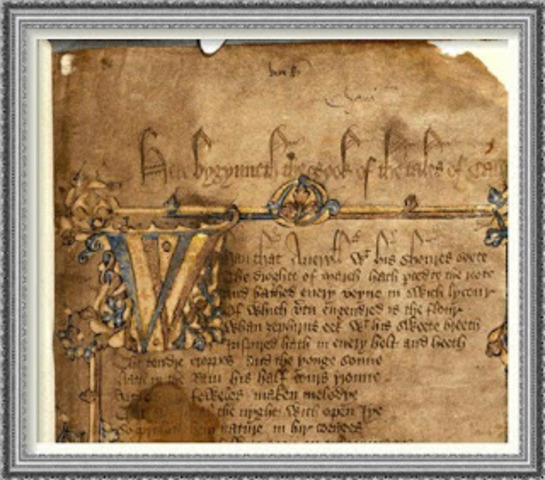 Here bygynneth the Book of the tales of Cau
Whan that Aueryll wt his shoures soote
The droghte of March hath perced to the roote
And bathed euery veyne in swich lycour
Of which vertu engendred is the flour
Whan zephirus eek wt his sweete breeth
Inspired hath in euery holt and heeth
The tendre croppes and the yonge sonne
Hath in the Ram his half cours yronne
And foweles maken melodye
That the nyght with open Iye
So priketh hem nature in hir corages